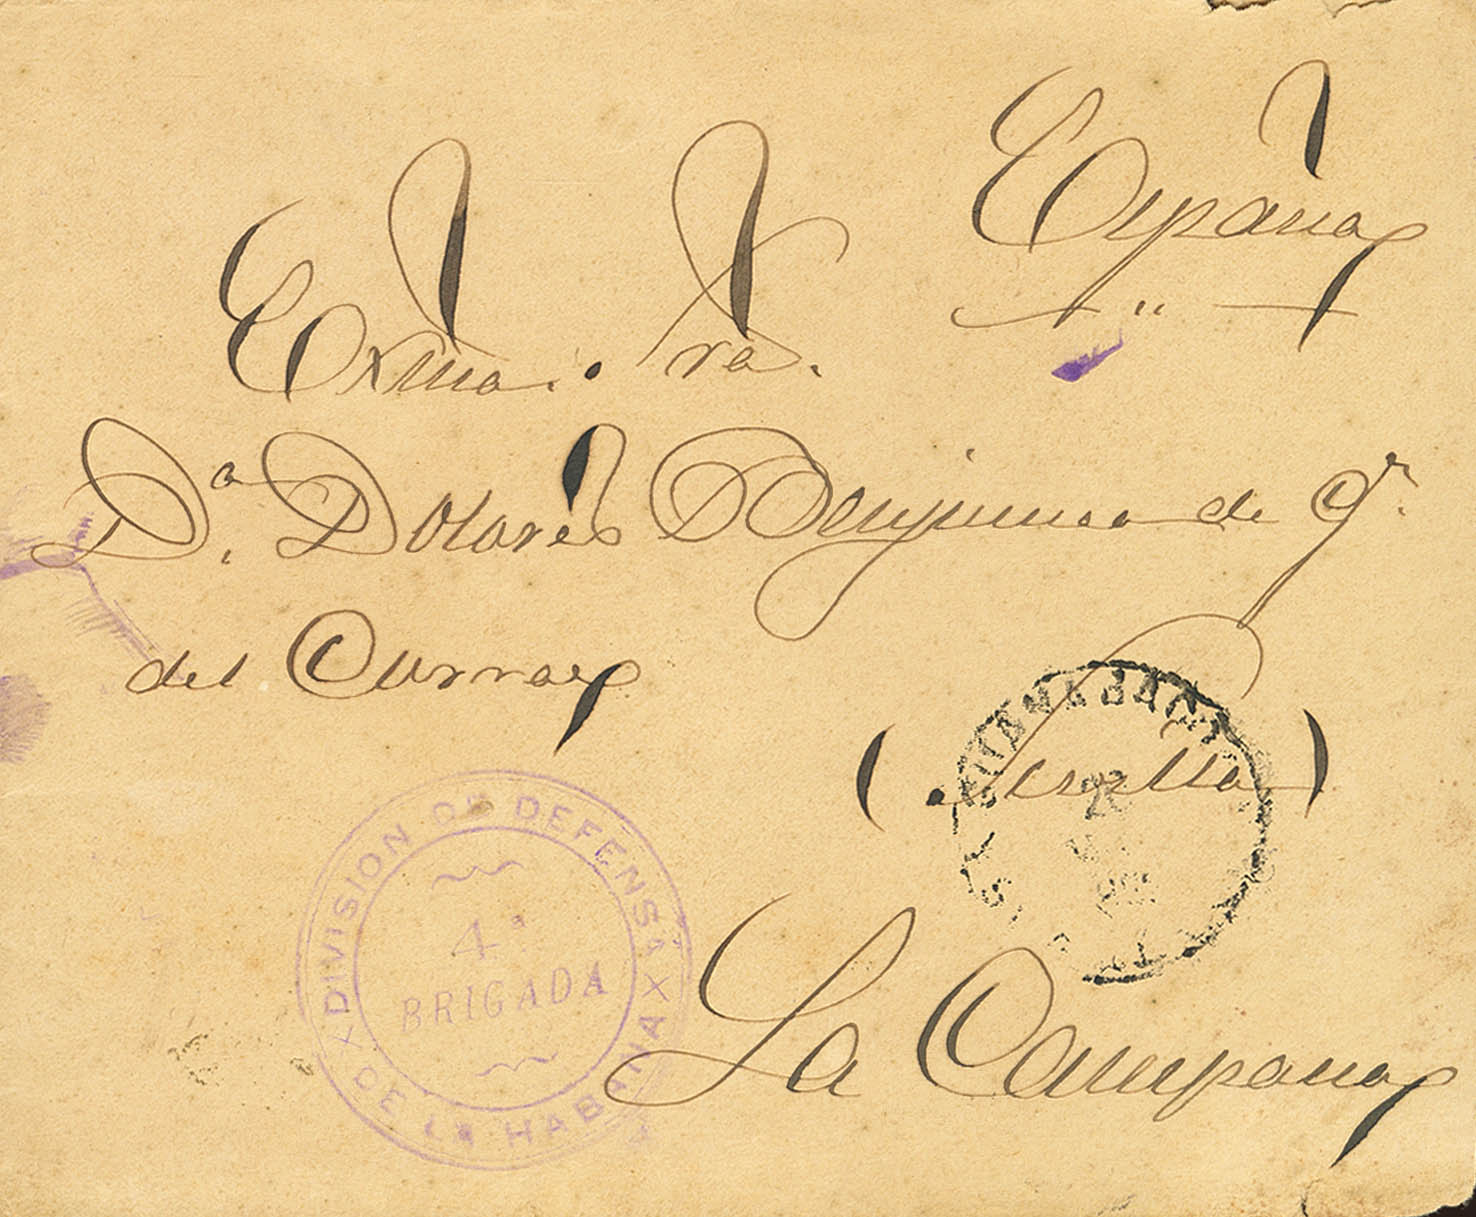 España
Exma. Sra.
Dª. Dolores Benjumea de G.
del Corro
(Sevilla)
La Campana
DIVISION DE DEFENSA
4ª
BRIGADA
DE LA HABANA